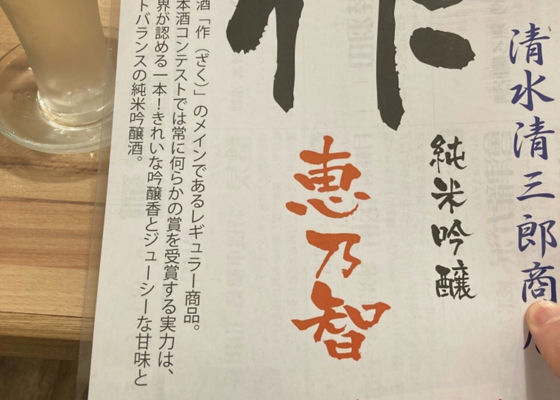 清水清三郎商
純米吟醸
作
恵乃智
酒「作（ざく）」のメインであるレギュラー商品。
本酒コンテストでは常に何らかの賞を受賞する実力は、
界が認める一本！きれいな吟醸香とジューシーな甘味と
トバランスの純米吟醸酒。